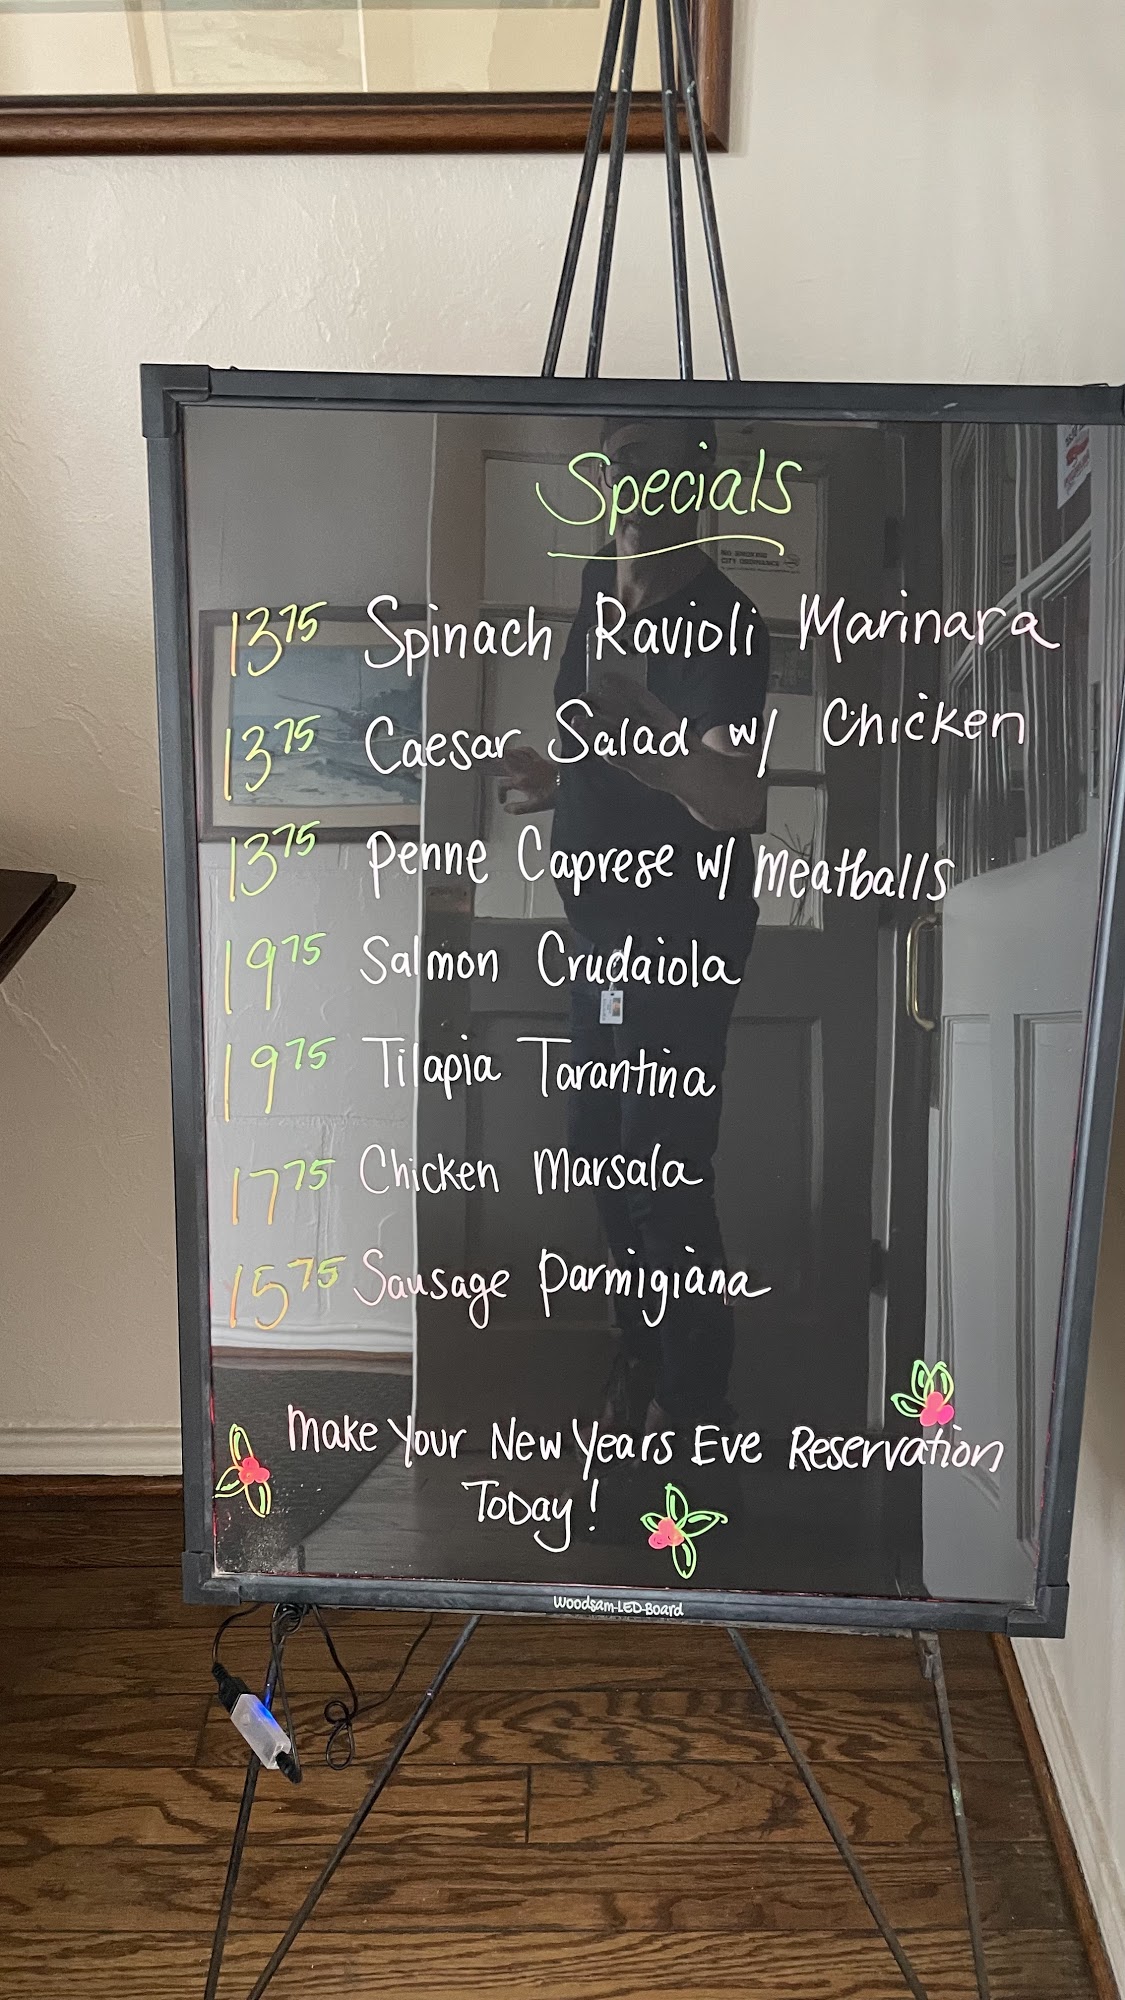 Specials
13 75 Spinach Ravioli Marinara
13 75 Caesar Salad w/ Chicken
13 75 Penne Caprese w/ Meatballs
19 75 Salmon Crudaiola
19 75 Tilapia Tarantina
17 75 Chicken Marsala
15 75 Sausage Parmigiana
Make Your New Years Eve Reservation
Today!
Woodsam-LED-Board
NO SMOKING
CITY ORDINANCE